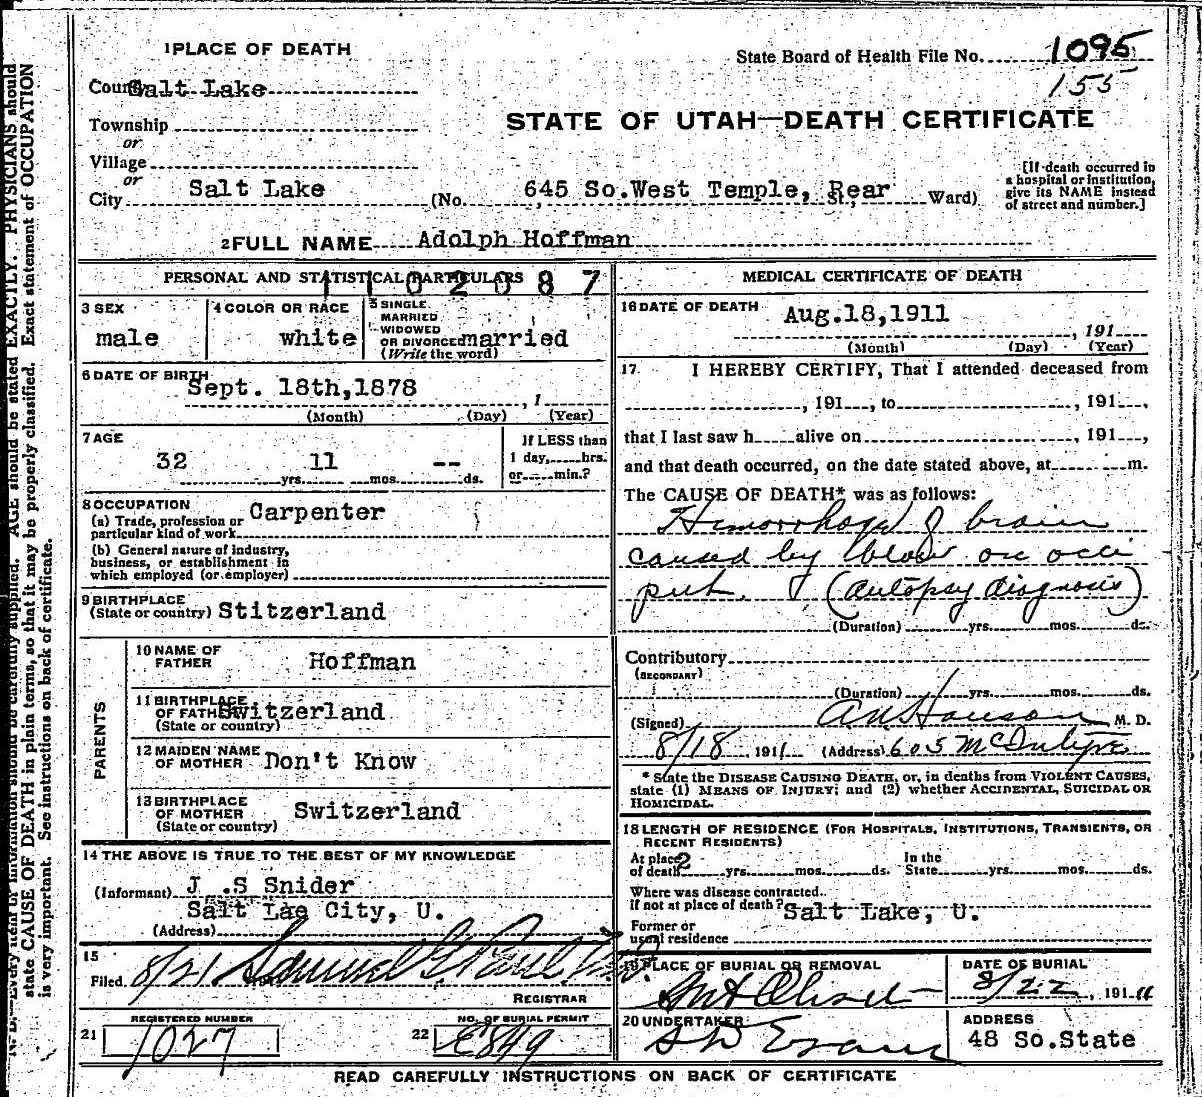 1 PLACE OF DEATH
State Board of Health File No. 1095
155
County Salt Lake
Township
or
Village
or
STATE OF UTAH—DEATH CERTIFICATE
City Salt Lake (No. 645 So.West Temple, Rear St., Ward)
[If death occurred in
a hospital or institution,
give its NAME instead
of street and number.]
2 FULL NAME Adolph Hoffman
PERSONAL AND STATISTICAL PARTICULARS
1102087
3 SEX
male
4 COLOR OR RACE
white
5 SINGLE
MARRIED
WIDOWED
OR DIVORCED married
(Write the word)
6 DATE OF BIRTH
Sept. 18th,1878
, 1
(Month) (Day) (Year)
7 AGE
32 yrs. 11 mos. -- ds.
If LESS than
1 day, hrs.
or min.?
8 OCCUPATION
(a) Trade, profession or
particular kind of work Carpenter
(b) General nature of industry,
business, or establishment in
which employed (or employer)
9 BIRTHPLACE
(State or country) Stitzerland
PARENTS
10 NAME OF
FATHER Hoffman
11 BIRTHPLACE
OF FATHER Switzerland
(State or country)
12 MAIDEN NAME
OF MOTHER Don't Know
13 BIRTHPLACE
OF MOTHER Switzerland
(State or country)
14 THE ABOVE IS TRUE TO THE BEST OF MY KNOWLEDGE
(Informant) J .S Snider
Salt Lae City, U.
(Address)
15
Filed 8/21 Samuel G. Paul
REGISTRAR
21 REGISTERED NUMBER
1027
22 NO. OF BURIAL PERMIT
E849
MEDICAL CERTIFICATE OF DEATH
16 DATE OF DEATH Aug.18,1911
, 191
(Month) (Day) (Year)
17 I HEREBY CERTIFY, That I attended deceased from
, 191 , to , 191 ,
that I last saw h alive on , 191 ,
and that death occurred, on the date stated above, at m.
The CAUSE OF DEATH* was as follows:
Hemorrhage of brain
caused by blow on occi
put. (Autopsy diagnosis)
(Duration) yrs. mos. ds.
Contributory
(SECONDARY)
(Duration) yrs. mos. ds.
(Signed) M. D.
8/18 , 1911 (Address) 605 McIntyre
* State the DISEASE CAUSING DEATH, or, in deaths from VIOLENT CAUSES,
state (1) MEANS OF INJURY; and (2) whether ACCIDENTAL, SUICIDAL OR
HOMICIDAL.
18 LENGTH OF RESIDENCE (FOR HOSPITALS, INSTITUTIONS, TRANSIENTS, OR
RECENT RESIDENTS)
At place
of death 2 yrs. mos. ds.
In the
State yrs. mos. ds.
Where was disease contracted
if not at place of death? Salt Lake, U.
Former or
usual residence
19 PLACE OF BURIAL OR REMOVAL
Mt Olivet
DATE OF BURIAL
8/22 , 1911
20 UNDERTAKER
S D Evans
ADDRESS
48 So.State
READ CAREFULLY INSTRUCTIONS ON BACK OF CERTIFICATE
N. B.—Every item of information should be carefully supplied. AGE should be stated EXACTLY. PHYSICIANS should
state CAUSE OF DEATH in plain terms, so that it may be properly classified. Exact statement of OCCUPATION
is very important. See instructions on back of certificate.